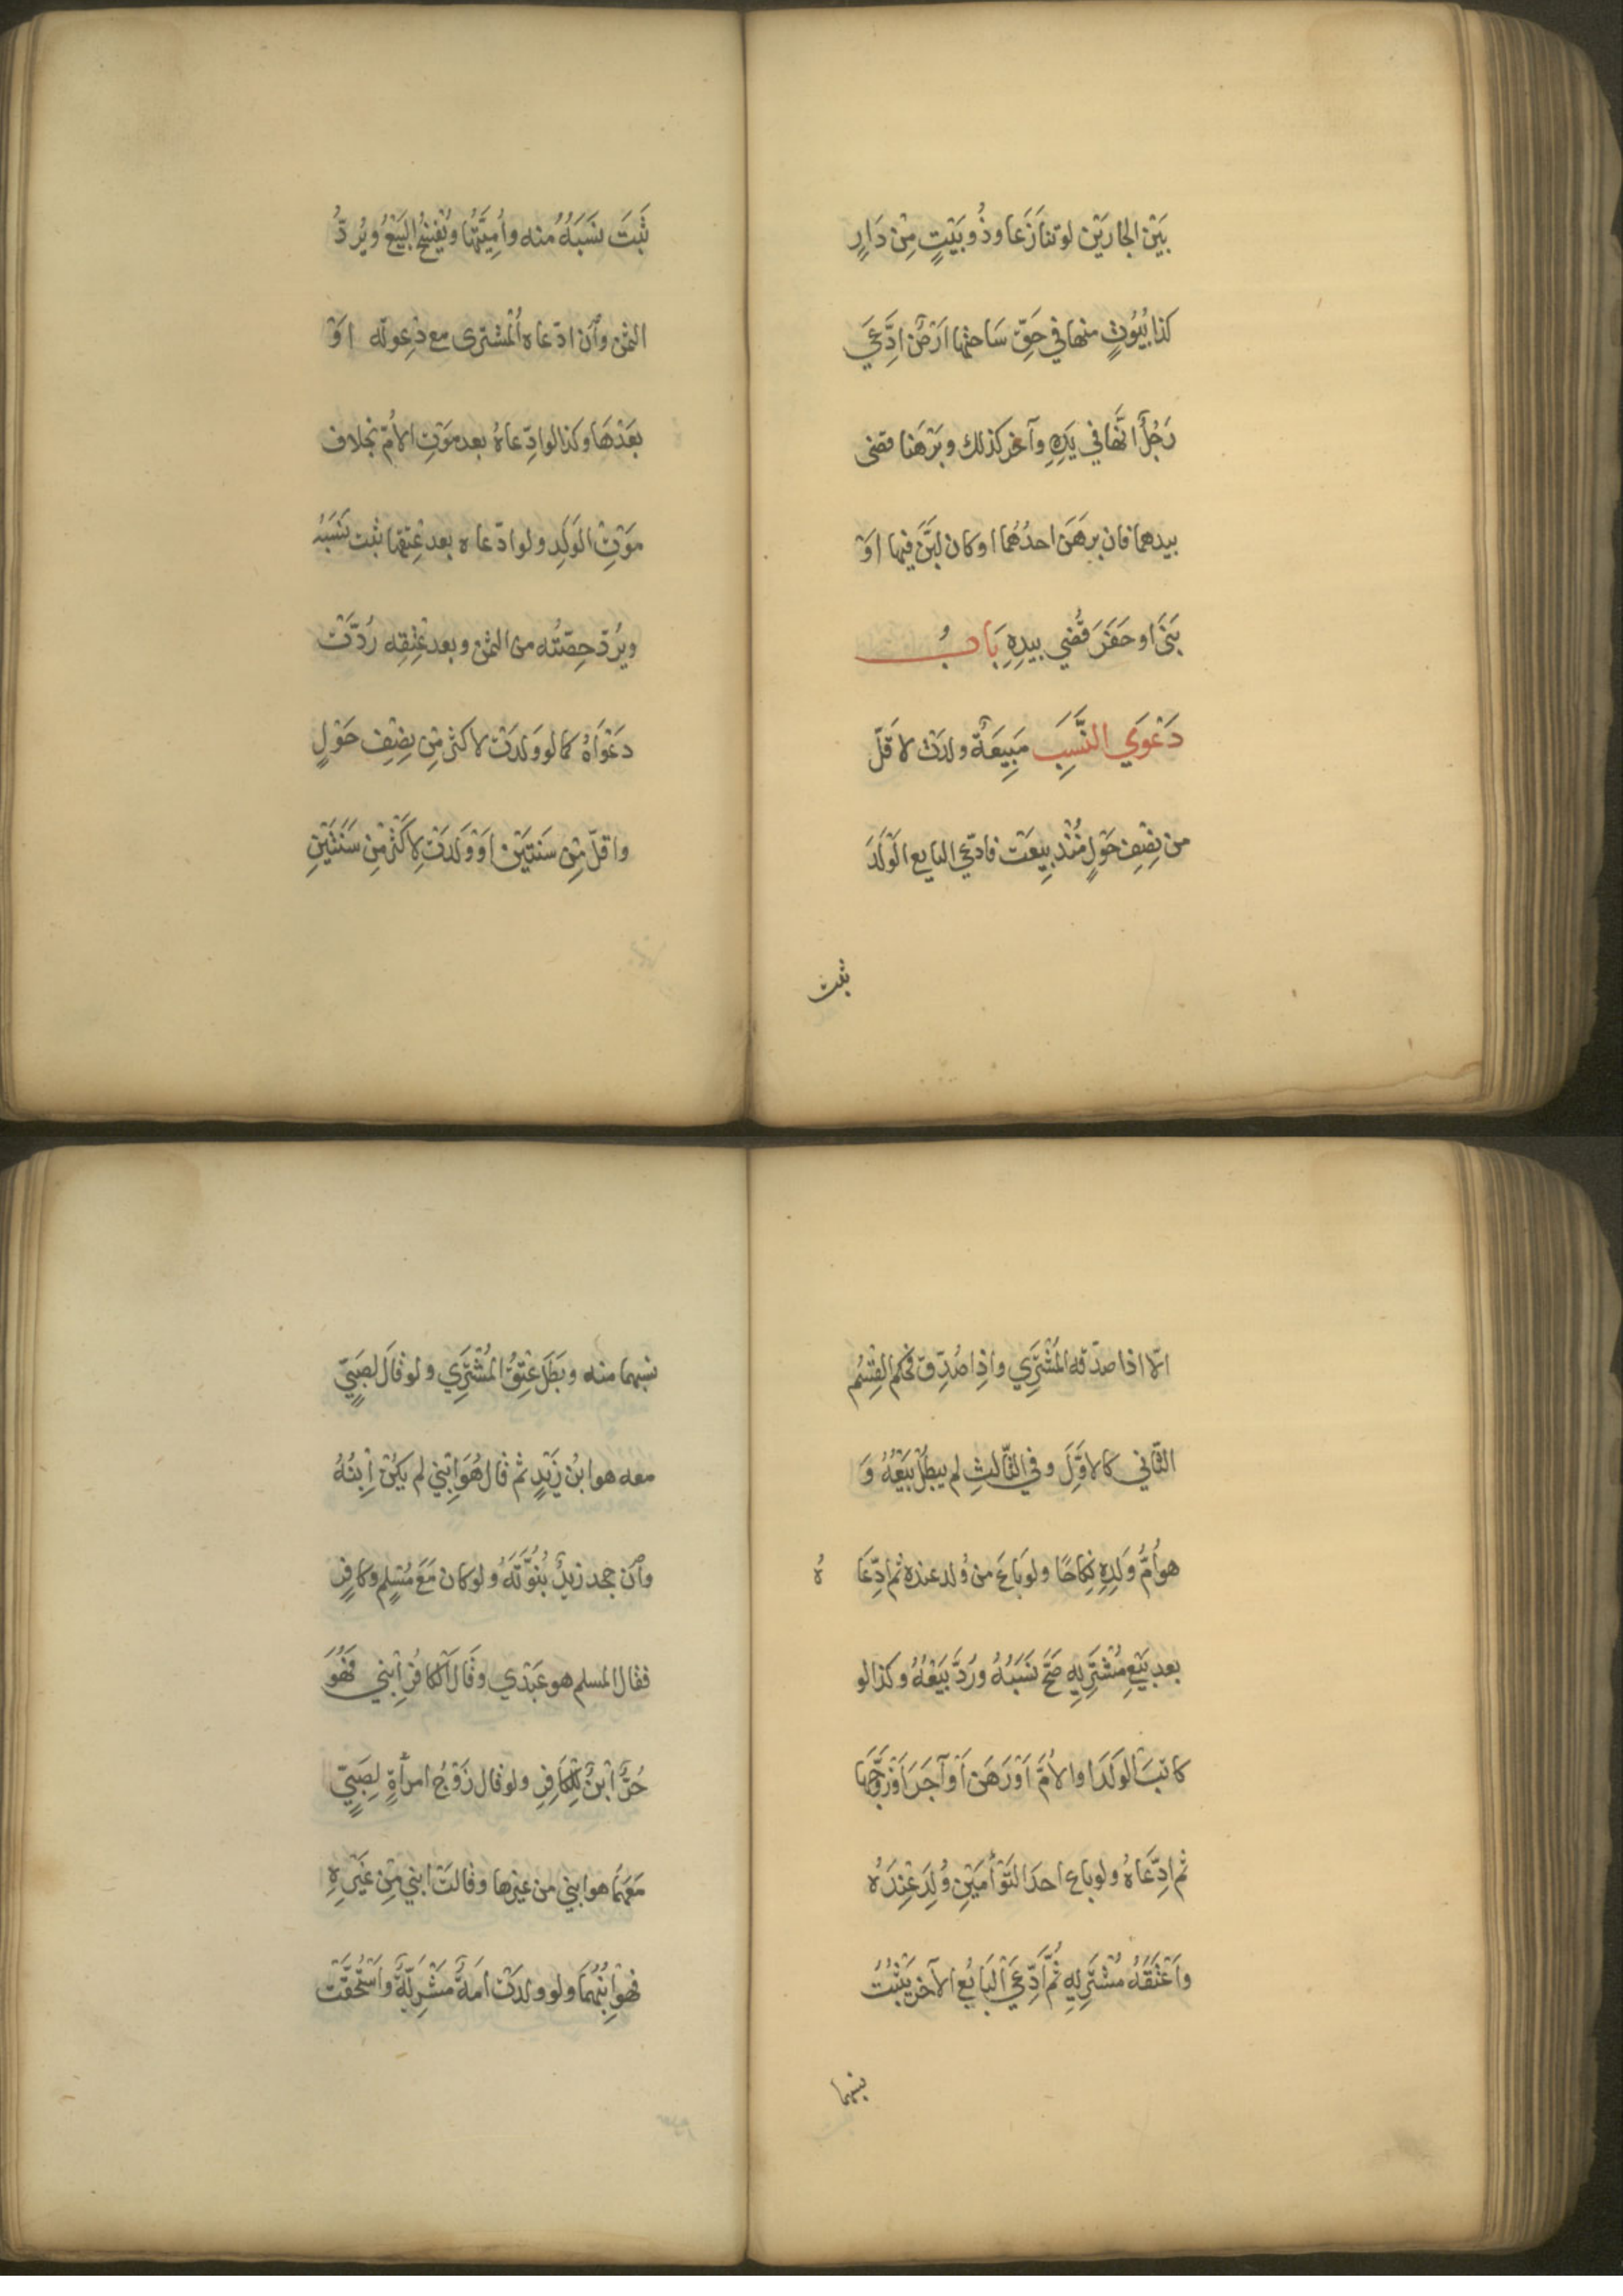 بَيْنَ الجارَيْن لو تنازَعا وذُو بَيْتٍ مِنْ دَارٍ
كذا بُيُوتٍ منها في حَقّ سَاحتها ارْضٌ ادَّعَي
رَجُلٌ انَّها في يَدِهِ وآخر كذلك وبَرْهَنا قضى
بيدهما فان برهَنَ احدُهُما او كان لبَّنَ فيها اوْ
بَنَى او حَفَرَ قُضي بيدِهِ بَابُ
دَعْوَي النَّسَبِ مَبِيعَةٌ ولدت لاقَلّ
من نِصْفِ حَوْلٍ مُنْذ بِيعَتْ فادّعي البايع الوَلَدَ
ثبت
ثَبَتَ نسَبَهُ منه وامِيَّتُها ويُفْسَخُ البَيْعُ ويُردُّ
الثمن وأن ادّعاه المُشترى مع دَعوته اوْ
بَعْدَهَا وكذا لو ادّعاهُ بعد مَوْتِ الامّ بخلاف
مَوْتِ الوَلَدِ ولو ادّعاه بعد عِتْقِها ثبت نسَبَهُ
ويُردّ حِصّتُه من الثمن وبعد عِتْقِه رُدَّتْ
دَعْوَاهُ كما لو وَلَدَتْ لاكثر مِنْ نِصْفِ حَوْلٍ
واقلّ مِنْ سَنتَيْن اوْ وَلَدَتْ لِاكْثرَ مِن سَنَتَيْنِ
الّا اذا صدّقه المُشْتَرِي واذا صُدِّقَ فحكم القِسْم
الثَّاني كالاوَّلِ وفي الثَّالثِ لم يبطل بَيْعُهُ وَ
هو أُمُّ وَلَدِهِ نِكاحًا ولو بَاعَ من وُلد عنده ثم ادّعَاهُ
بعد بَيْعِ مُشْتَرِيهِ صَحَّ نسَبُهُ ورُدَّ بَيْعُهُ وكذا لو
كاتبَ الوَلَدَ او الأُمَّ اوْ رَهَنَ اوْ آجَرَ اوْ زَوَّجَها
ثم ادِّعَاهُ ولو باع احدَ التَّوْأمَيْنِ وُلِدَ عِنْدَهُ
واَعْتَقَهُ مُشْتَرِيهِ ثُمَّ ادَّعَي البَايُع الآخر يَثْبُتُ
نسبهما
نسبهما منه وبَطَلَ عِتْقُ المُشْتَرِي ولو قَالَ لِصَبِيٍّ
معه هو ابنُ زَيْدٍ ثم قال هُوَ ابْني لم يَكُنْ ابنُهُ
وأن جحد زيدٌ بُنُوَّتَهُ ولو كان مَعَ مُسْلِمٍ وكافِرٍ
فقال المسلم هو عَبْدي وقَالَ الكافرُ ابْني فَهُوَ
حُرٌّ ابْنٌ لِلْكَافِرِ ولو قال زَوْجُ امرأةٍ لِصَبِيٍّ
مَعَهُمَا هو ابني من غيرها وقالتْ ابني مِنْ غَيْرِهِ
فهو ابْنُهُمَا ولو ولدَتْ امَةٌ مَشْرِيَّةٌ واسْتُحِقَّتْ